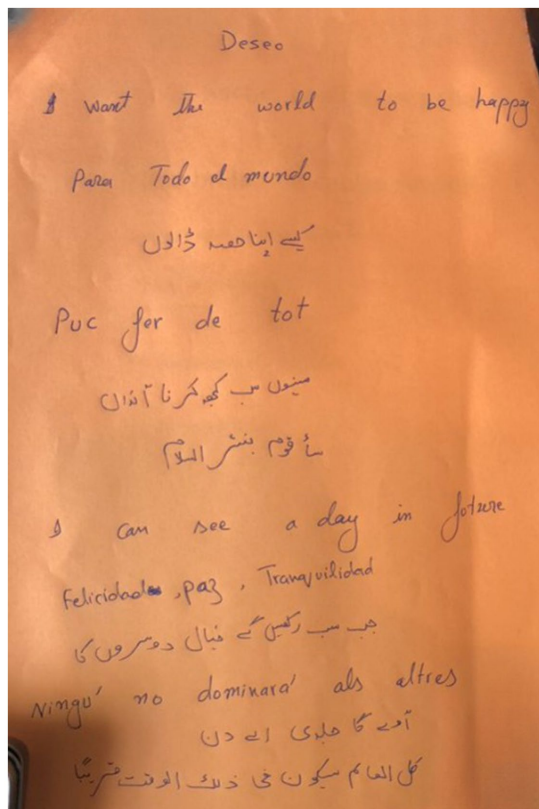 Deseo
I want the world to be happy
Para Todo el mundo
کیسے اپنا حصہ ڈالوں
Puc fer de tot
مینوں سب کجھ کرنا آندا
سأقوم بنشر السلام
I can see a day in foture
Felicidad, paz, Tranquilidad
جب سب رکھیں گے خیال دوسروں کا
Ningú no dominará als altres
آوے گا جلدی اے دن
كل العالم سيكون في ذلك الوقت قريبًا